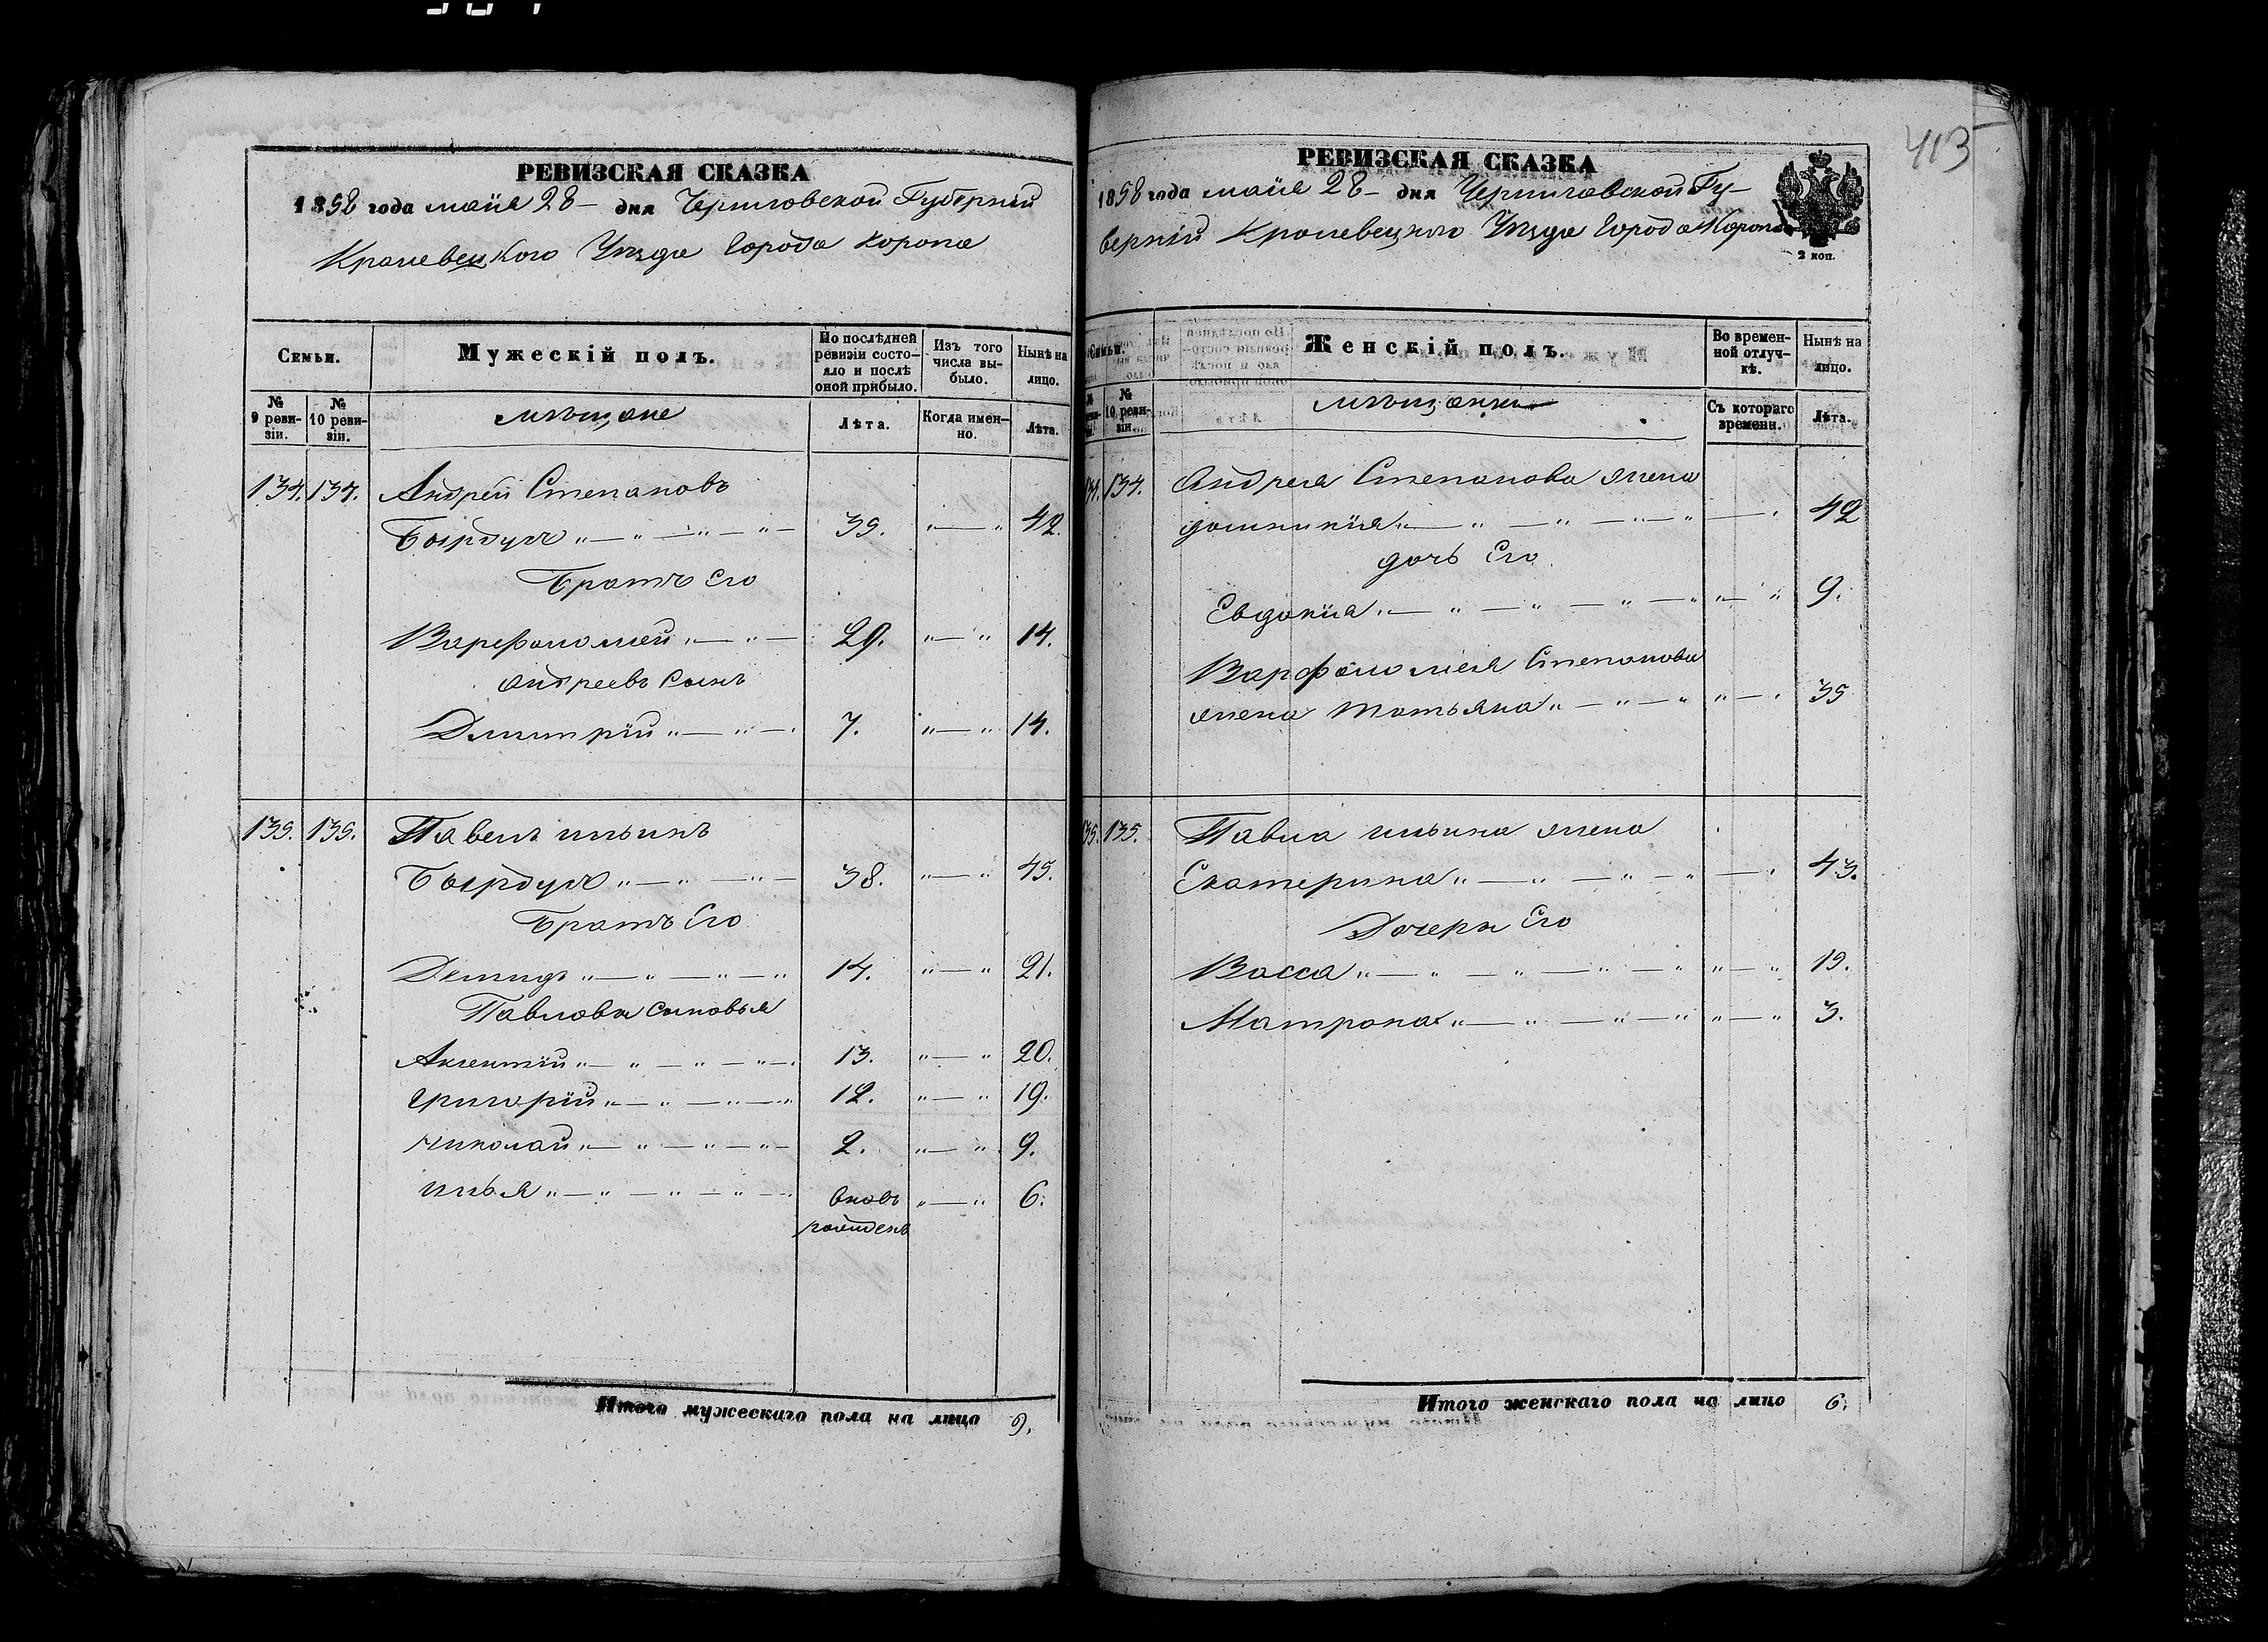 413
РЕВИЗСКАЯ СКАЗКА
1858 года маія 28 – дня Черниговской Губерніи
Кролевецкого Уѣзда Города Коропа
Семьи.
Мужескій полъ.
По послѣдней ревизіи состояло и послѣ оной прибыло.
Изъ того числа выбыло.
Нынѣ на лицо.
№ 9 ревизіи.
№ 10 ревизіи.
мѣщане
Лѣта.
Когда именно.
Лѣта.
134. 134. Андрей Степановъ
35. 42.
Братъ Его
Варфоломей 29. 14.
Андреевъ Сынъ
Дмитрій 7. 14.
135. 135. Павелъ ильинъ
38. 45.
Братъ Его
Демидъ 14. 21.
Павловы сыновья
Авксентій 13. 20.
Григорій 12. 19.
Николай 2. 9.
илья вновь 6.
рожденъ
Итого мужескаго пола на лицо 9.
РЕВИЗСКАЯ СКАЗКА
1858 года маія 28 – дня Черниговской Гу-
берніи Кролевецкого Уѣзда Города Коропа
2 коп.
Семьи.
Женскій полъ.
Во временной отлучкѣ.
Нынѣ на лицо.
№ 10 ревизіи.
мѣщанки
Съ котораго времени.
Лѣта.
134. 134. Андрея Степанова жена
домникія 42
дочь Его
Евдокія 9.
Варфоломея Степанова
жена татьяна 35
135. 135. Павла ильина жена
Екатерина 43.
Дочери Его
Васса 19.
Матрона 3.
Итого женскаго пола на лицо 6.